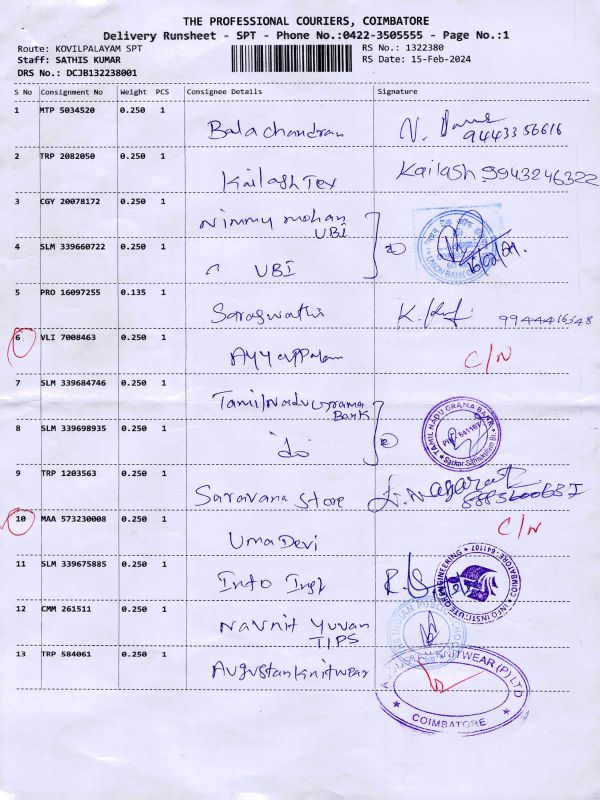 THE PROFESSIONAL COURIERS, COIMBATORE
Delivery Runsheet - SPT - Phone No.:0422-3505555 - Page No.:1
Route: KOVILPALAYAM SPT RS No.: 1322380
Staff: SATHIS KUMAR RS Date: 15-Feb-2024
DRS No.: DCJB132238001
S No Consignment No Weight PCS Consignee Details Signature
1 MTP 5034520 0.250 1
Balachandran 9443356616
2 TRP 2082050 0.250 1
Kailash Tex Kailash 9943246322
3 CGY 20078172 0.250 1
Nimmy mohan
UBI
4 SLM 339660722 0.250 1
UBI
5 PRO 16097255 0.135 1
Saraswathi K.
6 VLI 7008463 0.250 1
Ayyappalam C/N
7 SLM 339684746 0.250 1
Tamil Nadu Grama
Bank
TAMIL NADU GRAMA BANK
8 SLM 339698935 0.250 1
do
9 TRP 1203563 0.250 1
Saravana Store
10 MAA 573230008 0.250 1
Uma Devi C/N
11 SLM 339675885 0.250 1
Info Inst R.
INFO INSTITUTE OF ENGINEERING
COIMBATORE - 641107
12 CMM 261511 0.250 1
Navnit Yuvan
TIPS
13 TRP 584061 0.250 1
Augustan Knitwear
KNITWEAR (P) LTD
COIMBATORE